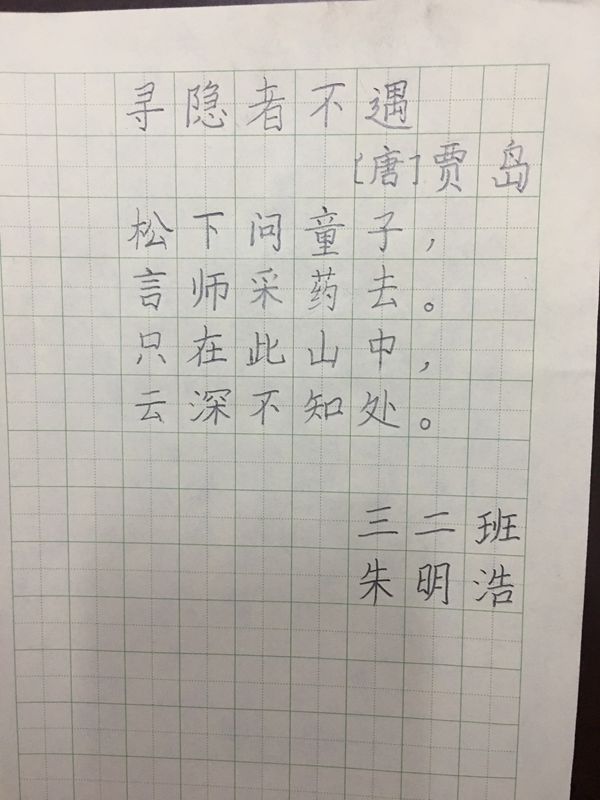 寻隐者不遇
[唐]贾岛
松下问童子，
言师采药去。
只在此山中，
云深不知处。
三二班
朱明浩